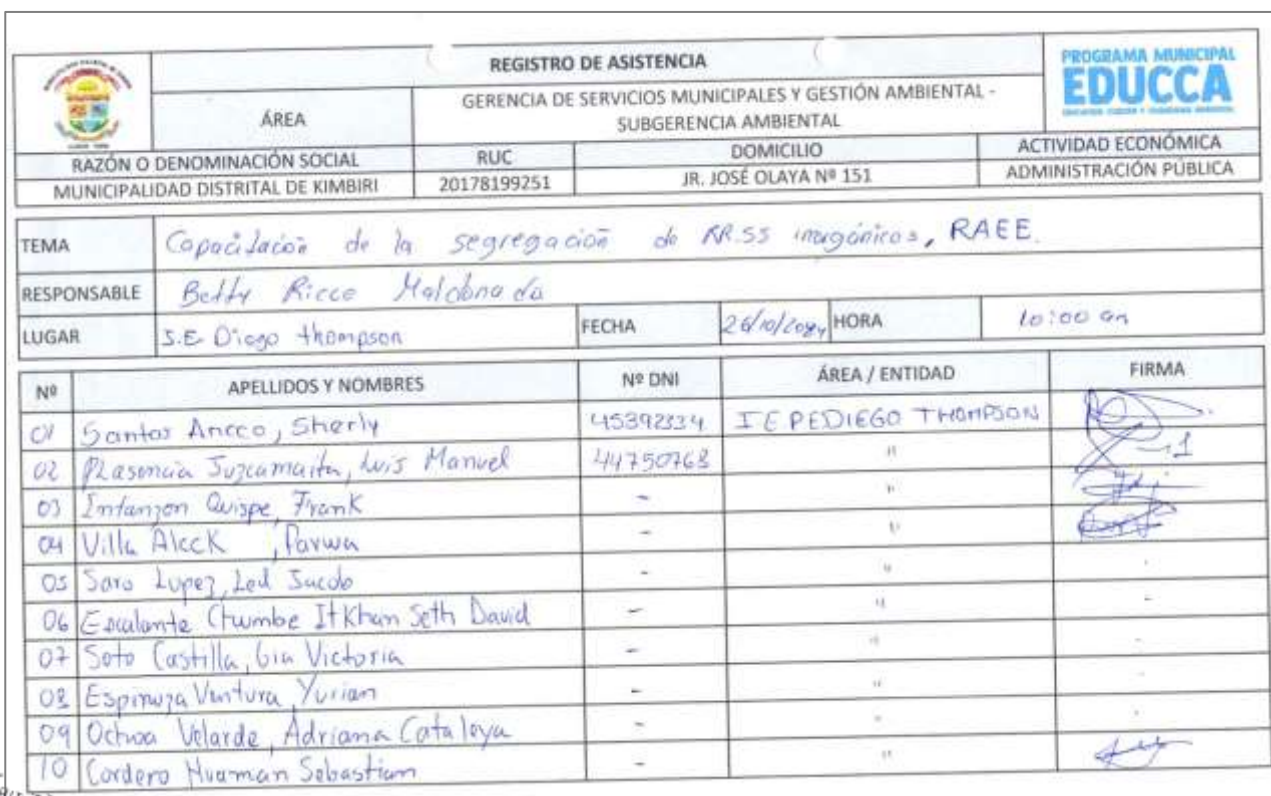 REGISTRO DE ASISTENCIA
PROGRAMA MUNICIPAL
EDUCCA
ÁREA
GERENCIA DE SERVICIOS MUNICIPALES Y GESTIÓN AMBIENTAL -
SUBGERENCIA AMBIENTAL
RAZÓN O DENOMINACIÓN SOCIAL RUC DOMICILIO ACTIVIDAD ECONÓMICA
MUNICIPALIDAD DISTRITAL DE KIMBIRI 20178199251 JR. JOSÉ OLAYA Nº 151 ADMINISTRACIÓN PÚBLICA
TEMA Capacitación de la segregación de RR.SS inorgánicos, RAEE.
RESPONSABLE Betty Ricce Maldonado
LUGAR I.E Diego thompson FECHA 26/10/2024 HORA 10:00 am
Nº APELLIDOS Y NOMBRES Nº DNI ÁREA / ENTIDAD FIRMA
01 Santos Ancco, Sherly 45392334 I E PEDIEGO THOMPSON
02 Plasencia Juzcamaita, Luis Manuel 44750768 "
03 Infanzon Quispe, Frank - "
04 Villa Alcck , - "
05 Saro Lopez, - "
06 Escalante Chumbe ItKhan Seth David - "
07 Soto Castilla, Victoria - "
08 Espinoza Ventura, Yurian - "
09 Ochoa Velarde, Adriana Cataleya - "
10 Cordero Huaman Sebastian - "